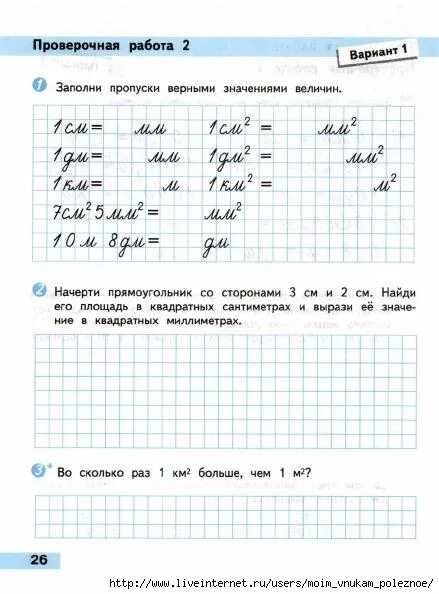 Проверочная работа 2
Вариант 1
1 Заполни пропуски верными значениями величин.
1 см = мм 1 см² = мм²
1 дм = мм 1 дм² = мм²
1 км = м 1 км² = м²
7 см² 5 мм² = мм²
10 м 8 дм = дм
2 Начерти прямоугольник со сторонами 3 см и 2 см. Найди
его площадь в квадратных сантиметрах и вырази её значе-
ние в квадратных миллиметрах.
3* Во сколько раз 1 км² больше, чем 1 м²?
26
http://www.liveinternet.ru/users/moim_vnukam_poleznoe/